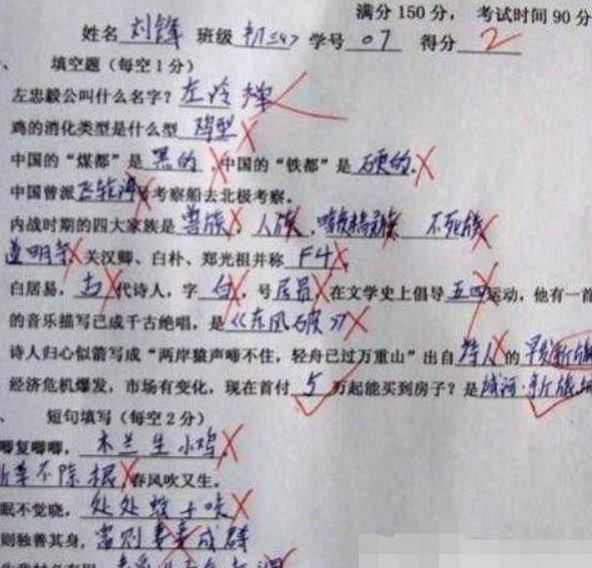 满分 150 分， 考试时间 90 分
姓名 刘锋 班级 初三47 学号 07 得分 2
填空题（每空 1 分）
左忠毅公叫什么名字？ 左冷禅
鸡的消化类型是什么型 鸡型
中国的“煤都”是 黑的 ，中国的“铁都”是 硬的.
中国曾派 飞轮海 号考察船去北极考察。
内战时期的四大家族是 兽族 ， 人族 ， 不死族
道明寺 关汉卿、白朴、郑光祖并称 F4
白居易， 古 代诗人，字 白 ，号 居易 ，在文学史上倡导 五四 运动，他有一首
的音乐描写已成千古绝唱，是 《东风破》
诗人归心似箭写成“两岸猿声啼不住，轻舟已过万重山”出自 诗人 的
经济危机爆发，市场有变化，现在首付 5 万起能买到房子？是
短句填写（每空 2 分）
唧复唧唧， 木兰生小鸡
草不除根 春风吹又生。
眠不觉晓， 处处蚊子咬
则独善其身， 富则妻妾成群